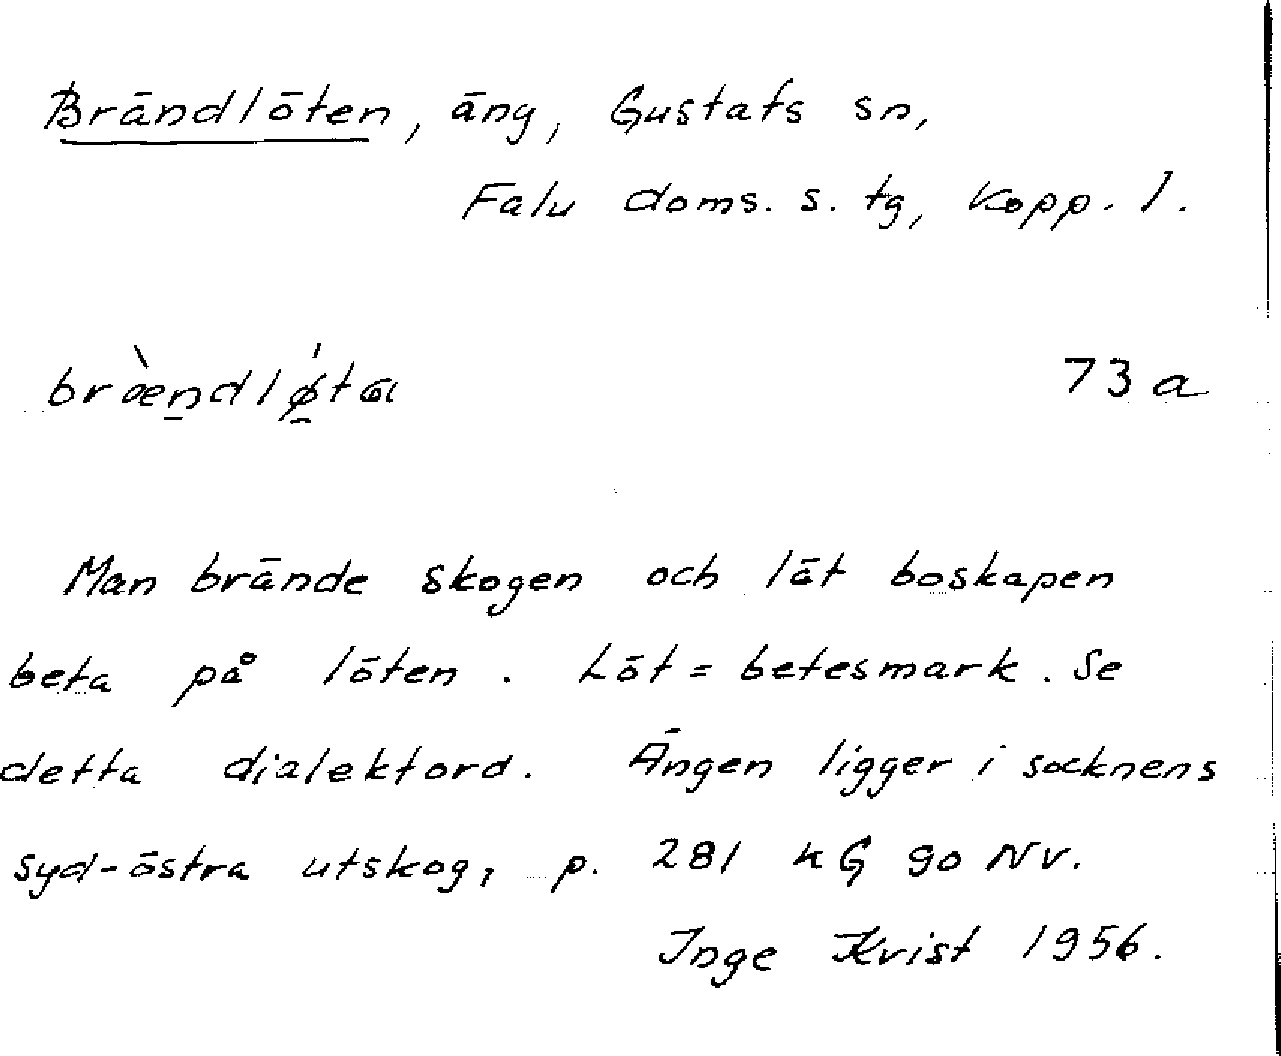 Brändlöten, äng, Gustafs sn,
Falu doms. s. tg, Kopp. l.
bræ̀ndlǿta 73 a
Man brände skogen och lät boskapen
beta på löten. Löt = betesmark. Se
detta dialektord. Ängen ligger i socknens
syd-östra utskog, p. 281 kG 90 NV.
Inge Kvist 1956.